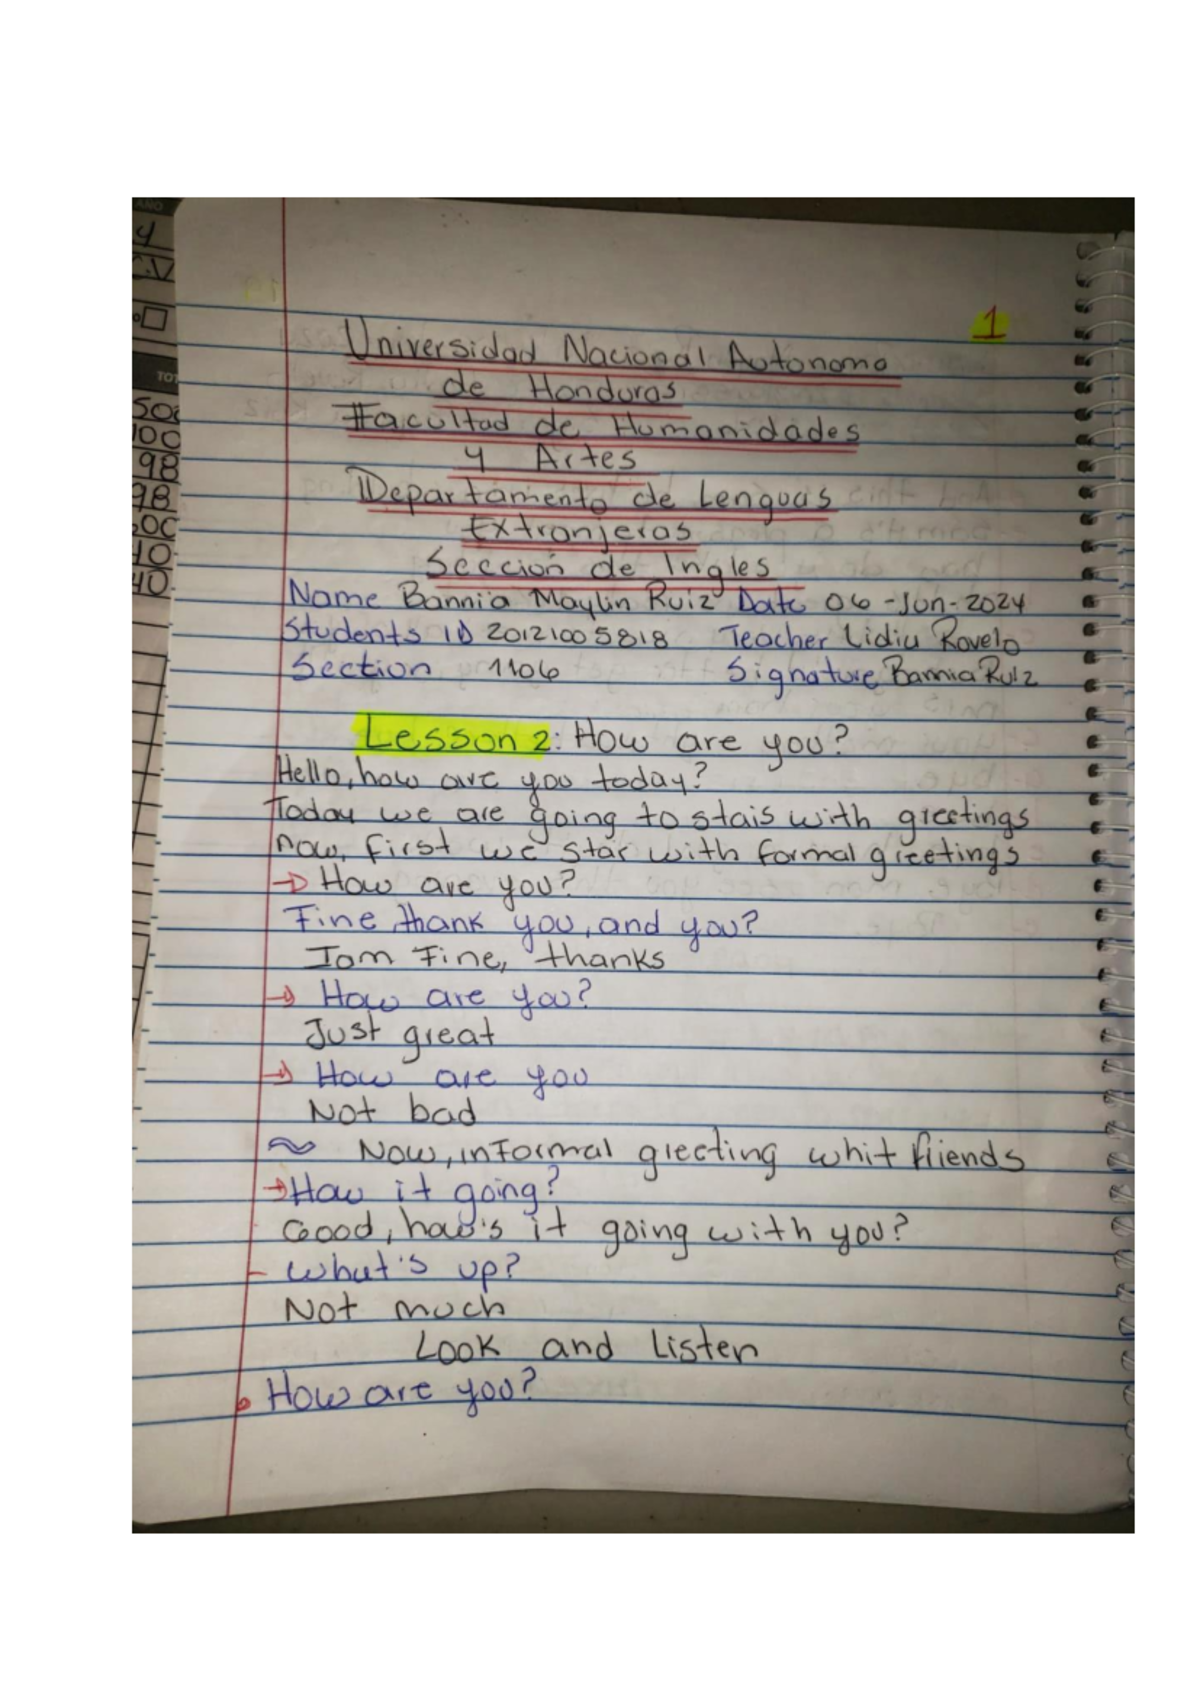 1
Universidad Nacional Autonoma
de Honduras
Facultad de Humanidades
y Artes
Departamento de Lenguas
Extranjeras
Sección de Ingles
Name Bannia Maylin Ruiz Date 06-Jun-2024
Students ID 20121005818 Teacher Lidiu Rovelo
Section 1106 Signature Bannia Ruiz
Lesson 2: How are you?
Hello, how are you today?
Today we are going to stais with greetings
now, first we star with formal greetings
→ How are you?
Fine, thank you, and you?
Iam Fine, thanks
→ How are you?
Just great
→ How are you
Not bad
~ Now, informal greeting whit friends
→ How it going?
Good, how's it going with you?
- What's up?
Not much
Look and listen
How are you?
AÑO
4
TOT
500
100
98
98
10
40